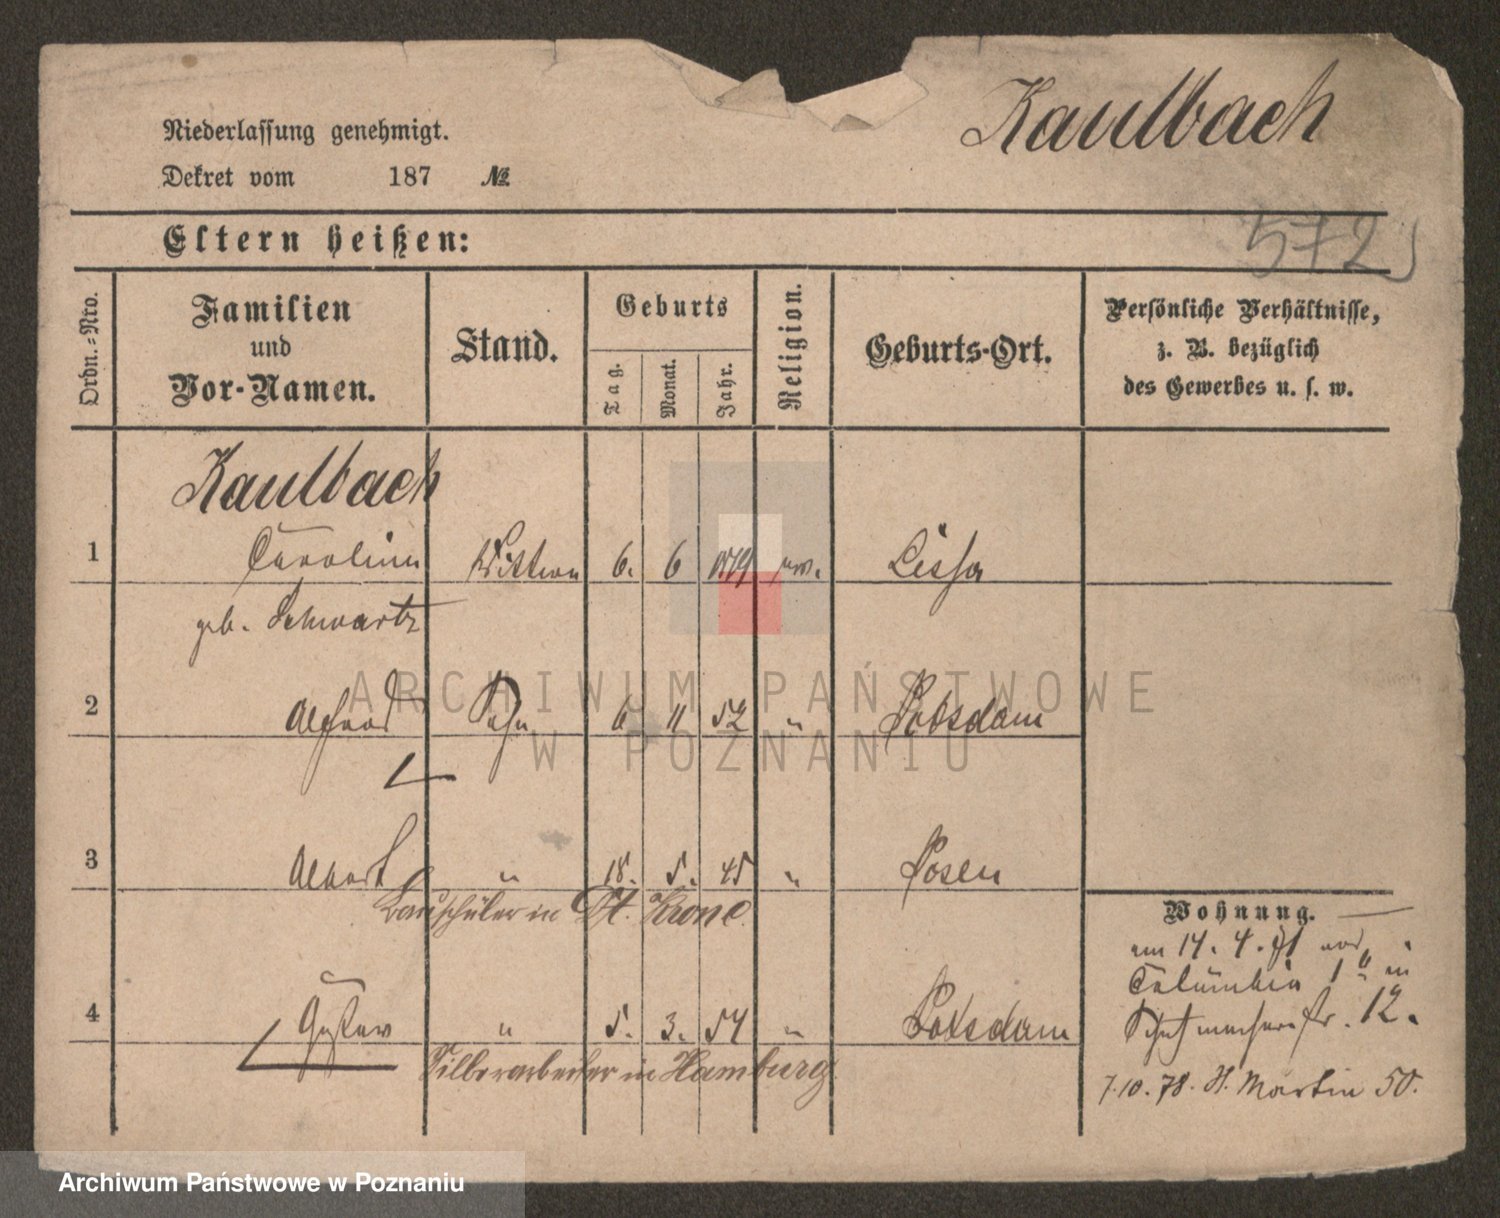 Kaulbach
Niederlassung genehmigt.
Dekret vom 187 №
572
Eltern heißen:
Ordn.=Nro.
Familien
und
Vor-Namen.
Stand.
Geburts
Tag.
Monat.
Jahr.
Religion.
Geburts-Ort.
Persönliche Verhältnisse,
z. B. bezüglich
des Gewerbes u. s. w.
Kaulbach
1 Caroline Wittwe 6. 6 Lissa
geb. Schwartz
2 Alfred Sohn 6 11 52 " Potsdam
3 Albert " 18. 5. 45 " Posen
Bauschüler in Dt. Krone
4 Gustav " 5. 3. 54 " Potsdam
Silberarbeiter in Hamburg
Wohnung.
am 14. 4. 71
Columbia 1
Schuhmacherstr. 12.
7.10.78. St. Martin 50.
ARCHIWUM PAŃSTWOWE
W POZNANIU
Archiwum Państwowe w Poznaniu